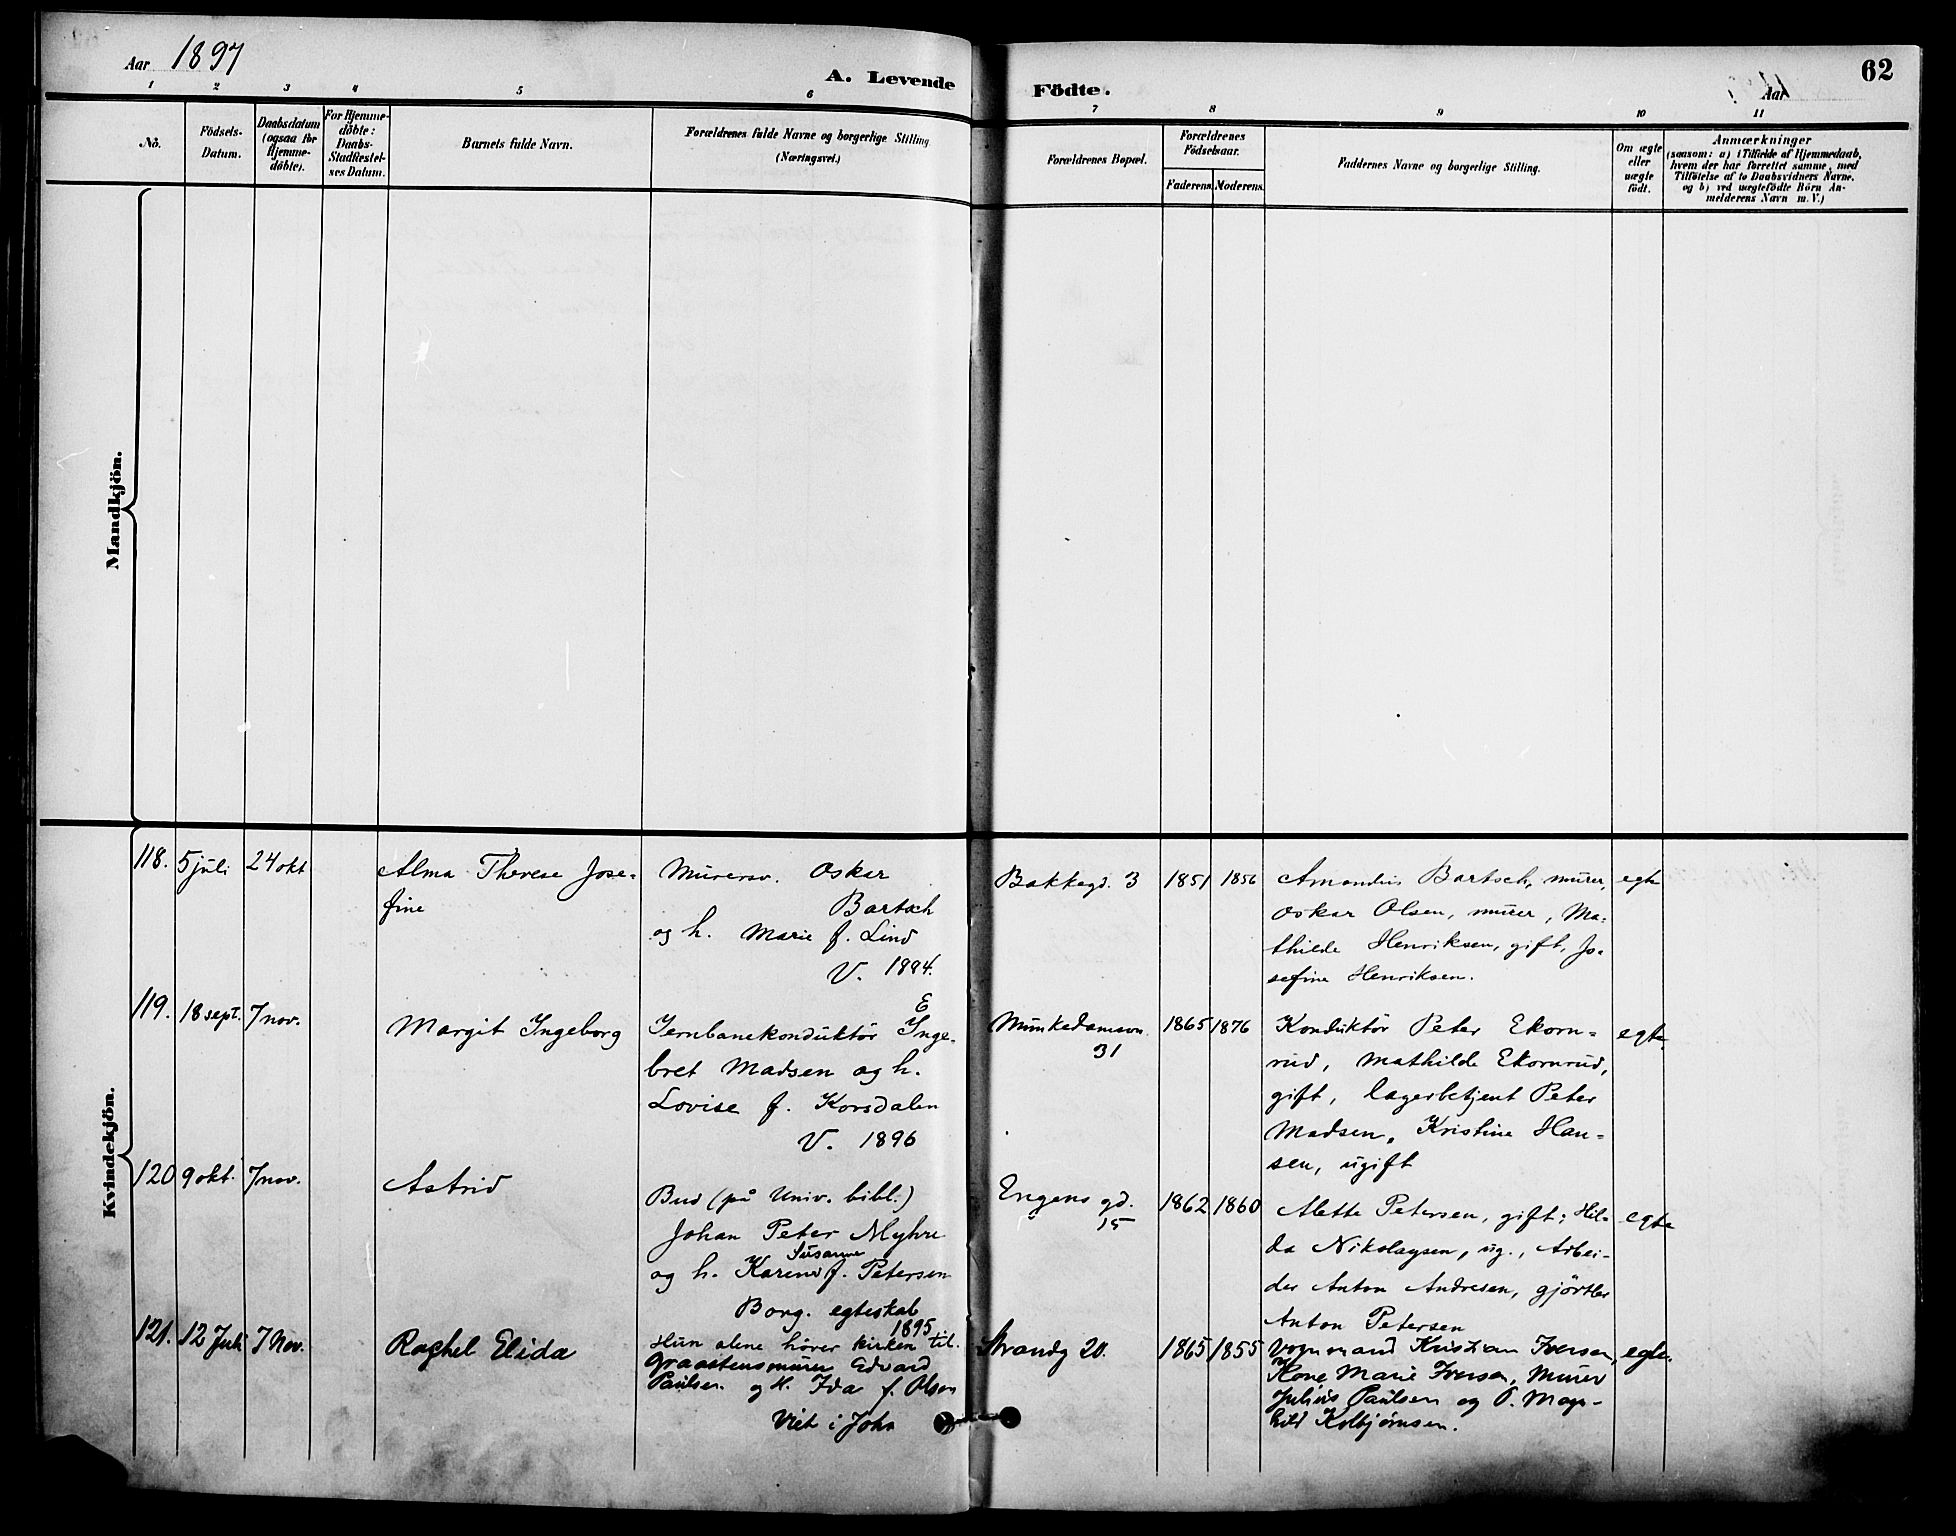 Aar 1897
A. Levende Födte.
Aar
62
1 2 3 4 5 6 7 8 9 10 11
No.
Födsels-
Datum.
Daabsdatum
(ogsaa for
Hjemme-
döbte).
For Hjemme-
döbte:
Daabs-
Stadfæstel-
ses Datum.
Barnets fulde Navn.
Forældrenes fulde Navne og borgerlige Stilling
(Næringsvei.)
Forældrenes Bopæl.
Forældrenes
Födselsaar.
Faderens. Moderens.
Faddernes Navne og borgerlige Stilling.
Om ægte
eller
uægte
födt.
Anmærkninger
(saasom: a) i Tilfælde af Hjemmedaab,
hvem der har forrettet samme, med
Tilföielse af to Daabsvidners Navne.
og b) ved uægtefödte Börn An-
melderens Navn m. V.)
Mandkjön.
Kvindekjön.
118. 5 juli 24 okt
Alma Therese Jose-
fine
Murersv. Oskar
Bartsch
og h. Marie f. Lind
V. 1884.
Bakkegd. 3
1851 1856
Amandus Bartsch, murer,
Oskar Olsen, murer, Ma-
thilde Henriksen, gift, Jo-
sefine Henriksen.
egte
119. 18 sept. 7 nov.
Margit Ingeborg
E
Jernbanekonduktör Inge-
bret Madsen og h.
Lovise f. Korsdalen
V. 1896
Munkedamsvn.
31
1865 1876
Konduktör Peter Ekorn-
rud, Mathilde Ekornrud,
gift, lagerbetjent Peter
Madsen, Kristine Han-
sen, ugift
egte
120 9 okt. 7 nov.
Astrid
Bud (på Univ. bibl.)
Johan Peter Myhre
Susanne
og h. Karen f. Petersen
Borg. egteskab
1895
Hun alene hörer kirken til.
Engens gd.
15
1862 1860
Alette Petersen, gift; Hil-
da Nikolaysen, ug., Arbei-
der Anton Andresen, gjörtler
Anton Petersen
egte
121. 12 Juli 7 Nov.
Rachel Elida
Graastensmurer Edvard
Paulsen og H. Ida f. Olsen
Viet i Joh
Strandg 20.
1865 1855
Vognmand Kristian Iversen,
Kone Marie Iversen, Murer
Julius Paulsen og P. Mag-
hild Kolbjörnsen.
egte.